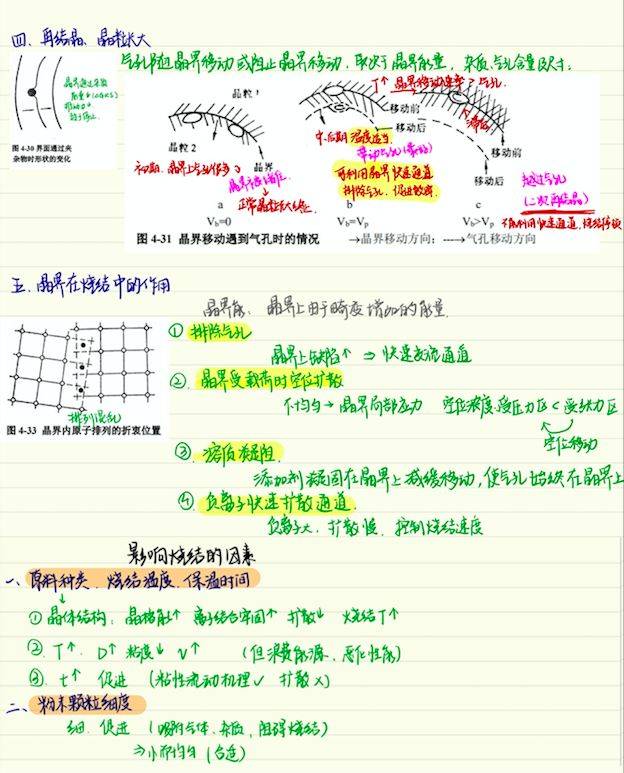 四、再结晶、晶粒长大
气孔随晶界移动或阻止晶界移动,取决于晶界能量,杂质、气孔含量尺寸.
图 4-30 界面通过夹
杂物时形状的变化
晶粒1
晶粒2
晶界
初期.晶界上气孔
正常晶粒长大
a
V_b=0
中、后期 温度适当
带动气孔
可利用晶界快速通道
排除气孔,促进致密.
b
V_b=V_p
T↑ 晶界移动速率>气孔.
移动前
移动后
移动前
移动后
越过气孔
(二次再结晶)
c
V_b>V_p
图 4-31 晶界移动遇到气孔时的情况 →晶界移动方向; --→气孔移动方向
五、晶界在烧结中的作用
晶界能、晶界上由于畸变增加的能量.
① 排除气孔
晶界上缺陷↑ ⇒ 快速交流通道
② 晶界受载荷时空位扩散
不均匀→晶界局部应力 空位浓度:受压力区<受张力区
空位移动
排列混乱
图 4-33 晶界内原子排列的折衷位置
③ 溶质凝阻.
添加剂凝固在晶界上减缓移动,使气孔始终在晶界上
④ 负离子快速扩散通道.
负离子大、扩散慢、控制烧结速度
影响烧结的因素
一、原料种类、烧结温度、保温时间
① 晶体结构:晶格能↑ 离子结合牢固↑ 扩散↓ 烧结T↑
② T↑ D↑ 粘度↓ v↑ (但浪费能源、恶化性能)
③ t↑ 促进 (粘性流动机理✓ 扩散×)
二、粉末颗粒细度
细.促进 (吸附气体、杂质,阻碍烧结)
⇒小而均匀 (合适)